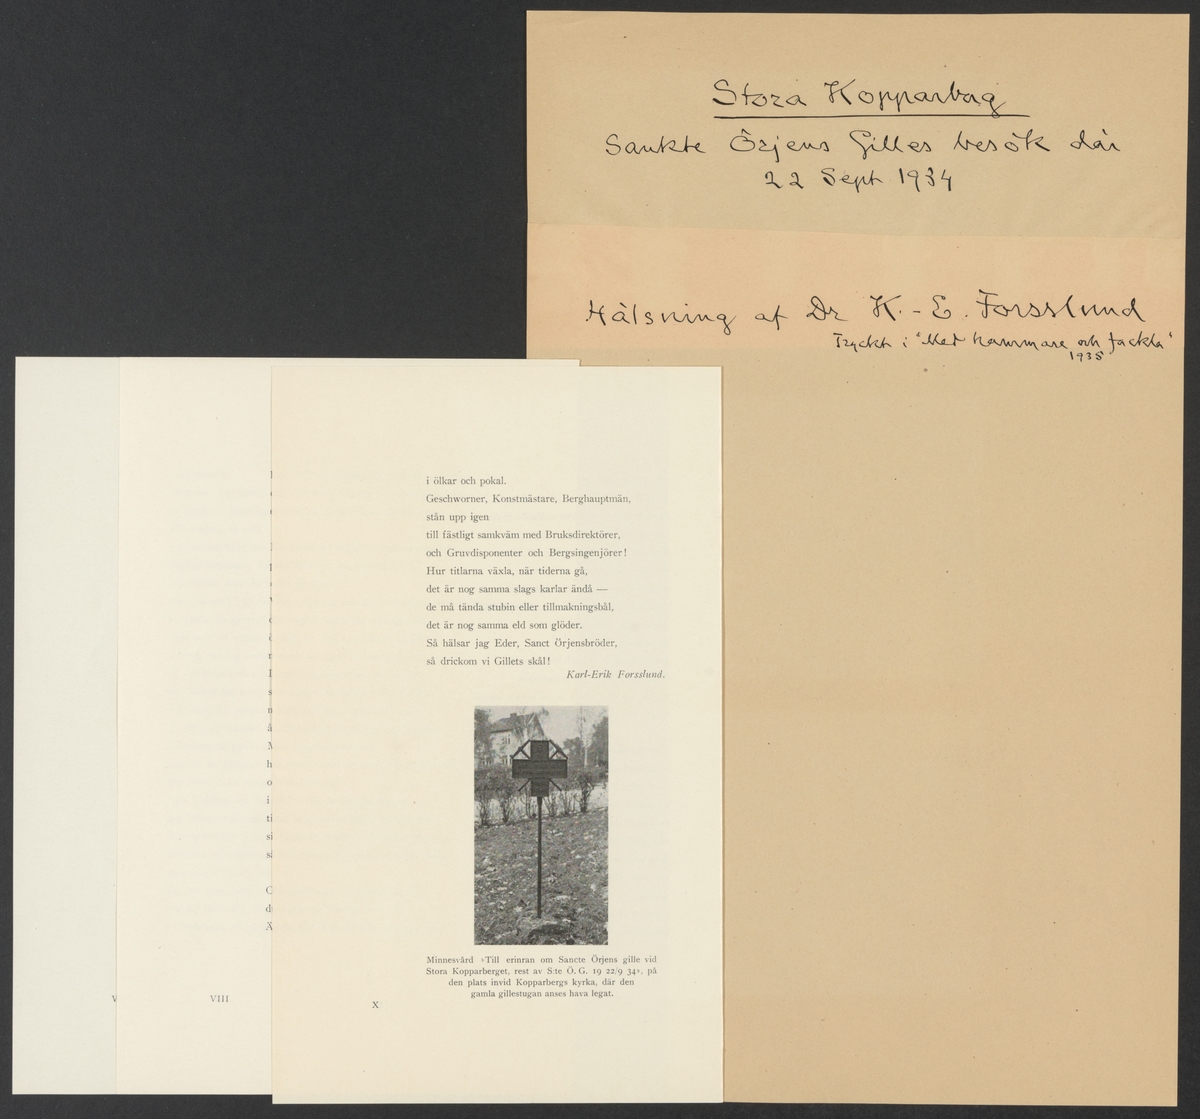 Stora Kopparberg
Sankte Örjens Gilles besök där
22 Sept 1934
Hälsning af Dr K.-E. Forsslund
Tryckt i "Med hammare och fackla"
1935
i ölkar och pokal.
Geschworner, Konstmästare, Berghauptmän,
stån upp igen
till fästligt samkväm med Bruksdirektörer,
och Gruvdisponenter och Bergsingenjörer!
Hur titlarna växla, när tiderna gå,
det är nog samma slags karlar ändå —
de må tända stubin eller tillmakningsbål,
det är nog samma eld som glöder.
Så hälsar jag Eder, Sanct Örjensbröder,
så drickom vi Gillets skål!
Karl-Erik Forsslund.
Minnesvård »Till erinran om Sancte Örjens gille vid
Stora Kopparberget, rest av S:te Ö. G. 19 22/9 34», på
den plats invid Kopparbergs kyrka, där den
gamla gillestugan anses hava legat.
V
VIII
X